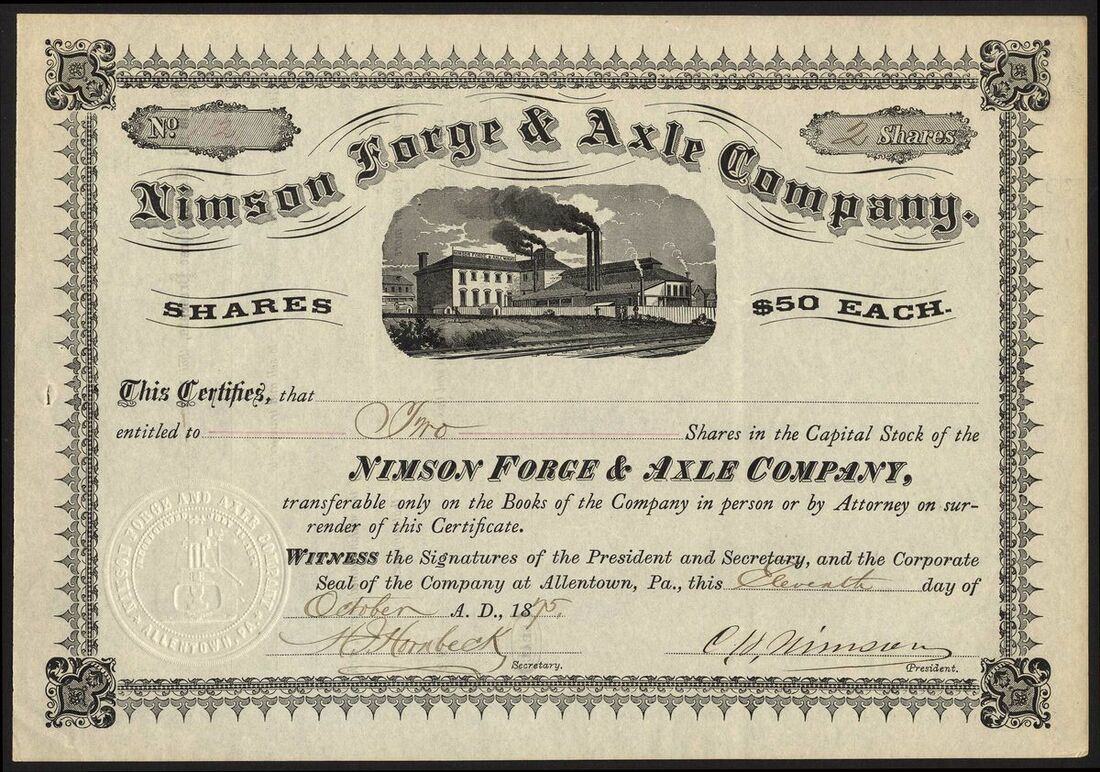 No. 12
2 Shares
Nimson Forge & Axle Company.
SHARES
$50 EACH.
This Certifies, that
entitled to Two Shares in the Capital Stock of the
NIMSON FORGE & AXLE COMPANY,
transferable only on the Books of the Company in person or by Attorney on sur-
render of this Certificate.
WITNESS the Signatures of the President and Secretary, and the Corporate
Seal of the Company at Allentown, Pa., this Eleventh day of
October A. D., 1875.
Hornbeck
C. W. Nimson
Secretary.
President.
NIMSON FORGE AND AXLE COMPANY.
ALLENTOWN, PA.